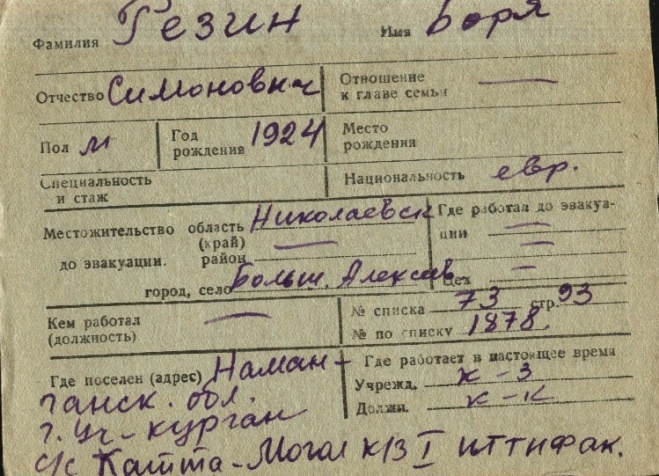 Фамилия Резин Имя Боря
Отчество Симонович Отношение к главе семьи —
Пол м Год рождения 1924 Место рождения
Специальность и стаж Национальность евр.
Местожительство до эвакуации. область (край) Николаевск Где работал до эвакуации —
район — —
город, село Больш. Алексеев Цех —
Кем работал (должность) — № списка 73 стр. 93
№ по списку 1878.
Где поселен (адрес) Наман- Где работает в настоящее время
ганск. обл. Учрежд. к-з
г. Уч-курган Должн. к-к
с/с Катта-Могол к/з I иттифак.